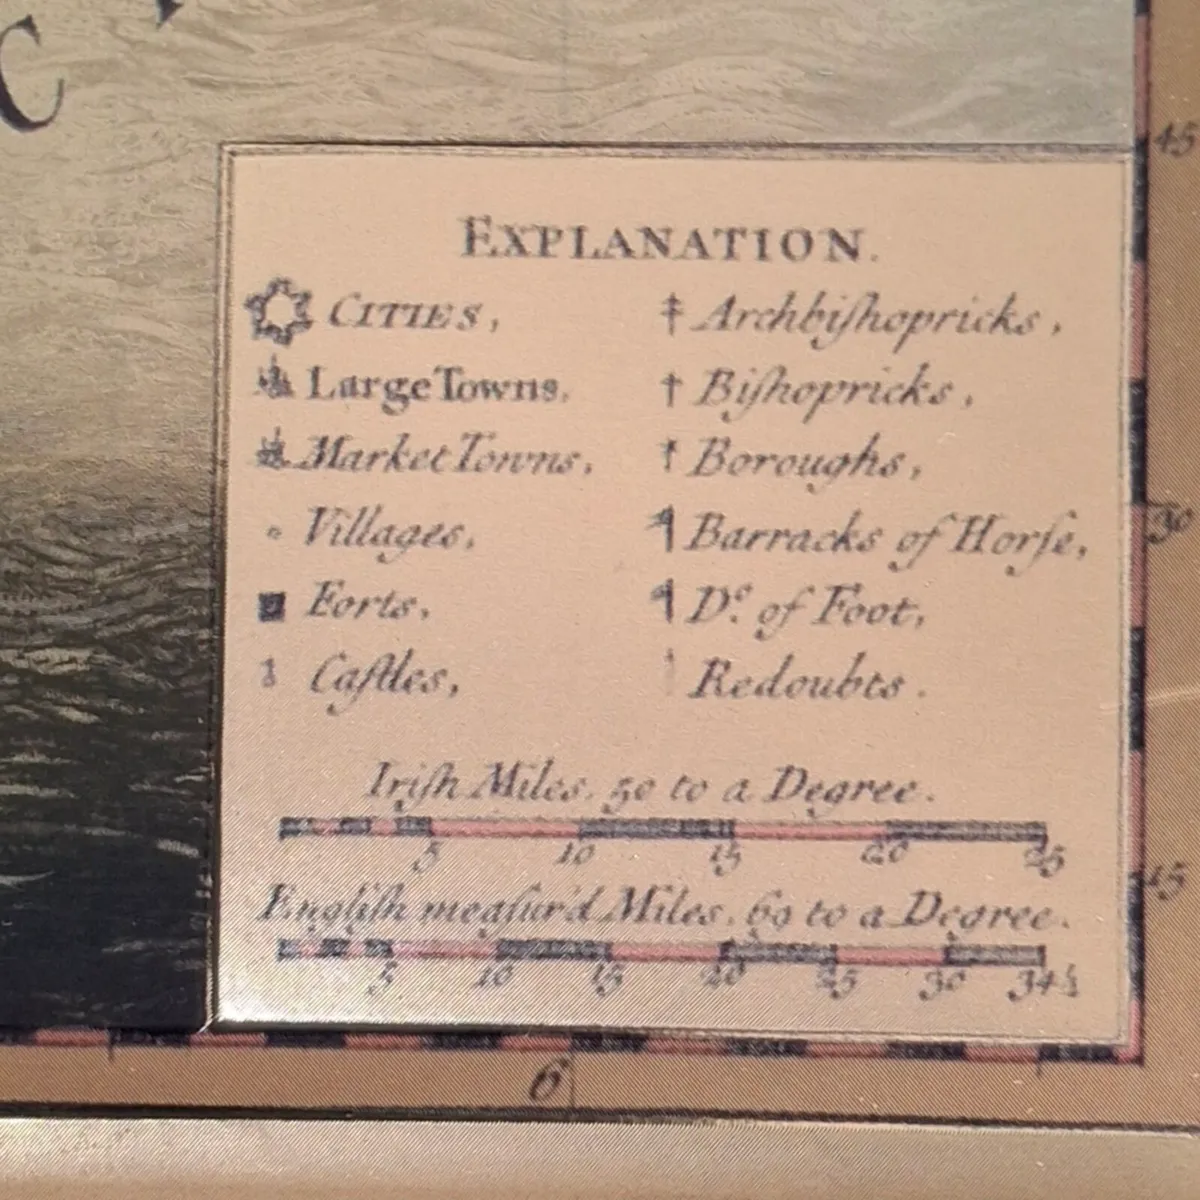 C
EXPLANATION.
CITIES,
Large Towns,
Market Towns,
Villages,
Forts,
Caſtles,
Archbiſhopricks,
Biſhopricks,
Boroughs,
Barracks of Horſe,
Dº. of Foot,
Redoubts.
Iriſh Miles. 50 to a Degree.
5 10 15 20 25
Engliſh meaſur'd Miles. 69 to a Degree.
5 10 15 20 25 30 34½
45
30
15
6